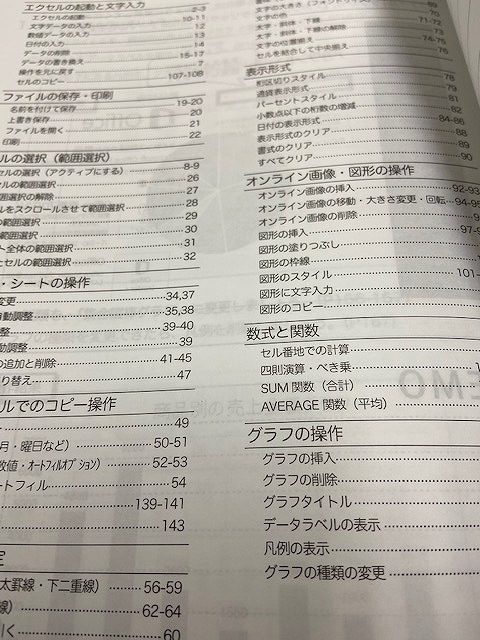 エクセルの起動と文字入力
エクセルの起動 2-3
文字データの入力 10-11
数値データの入力 12
日付の入力 13
データの削除 14
データの書き換え 15-17
操作を元に戻す 7
セルのコピー 107-108
ファイルの保存・印刷
名前を付けて保存 19-20
上書き保存 20
ファイルを開く 21
印刷 22
ルの選択（範囲選択）
セルの選択（アクティブにする） 8-9
セルの範囲選択 26
範囲選択の解除 27
ルをスクロールさせて範囲選択 28
の範囲選択 29
の範囲選択 30
ト全体の範囲選択 31
たセルの範囲選択 32
・シートの操作
変更 34,37
自動調整 35,38
調整 39-40
動調整 39
の追加と削除 41-45
り替え 47
ルでのコピー操作
49
月・曜日など） 50-51
数値・オートフィルオプション） 52-53
ートフィル 54
139-141
143
定
太罫線・下二重線） 56-59
線） 62-64
引く 60
文字の大きさ
文字の色 70
太字・斜体・下線 71-72
太字・斜体・下線の解除 73
文字の位置揃え 74-75
セルを結合して中央揃え 76
表示形式
桁区切りスタイル 78
通貨表示形式 79
パーセントスタイル 81
小数点以下の桁数の増減 82
日付の表示形式 84-86
表示形式のクリア 88
書式のクリア 89
すべてクリア 90
オンライン画像・図形の操作
オンライン画像の挿入 92-93
オンライン画像の移動・大きさ変更・回転 94-95
オンライン画像の削除
図形の挿入 97-9
図形の塗りつぶし
図形の枠線
図形のスタイル 101-
図形に文字入力
図形のコピー
数式と関数
セル番地での計算
四則演算・べき乗 1
SUM 関数（合計）
AVERAGE 関数（平均）
グラフの操作
グラフの挿入
グラフの削除
グラフタイトル
データラベルの表示
凡例の表示
グラフの種類の変更